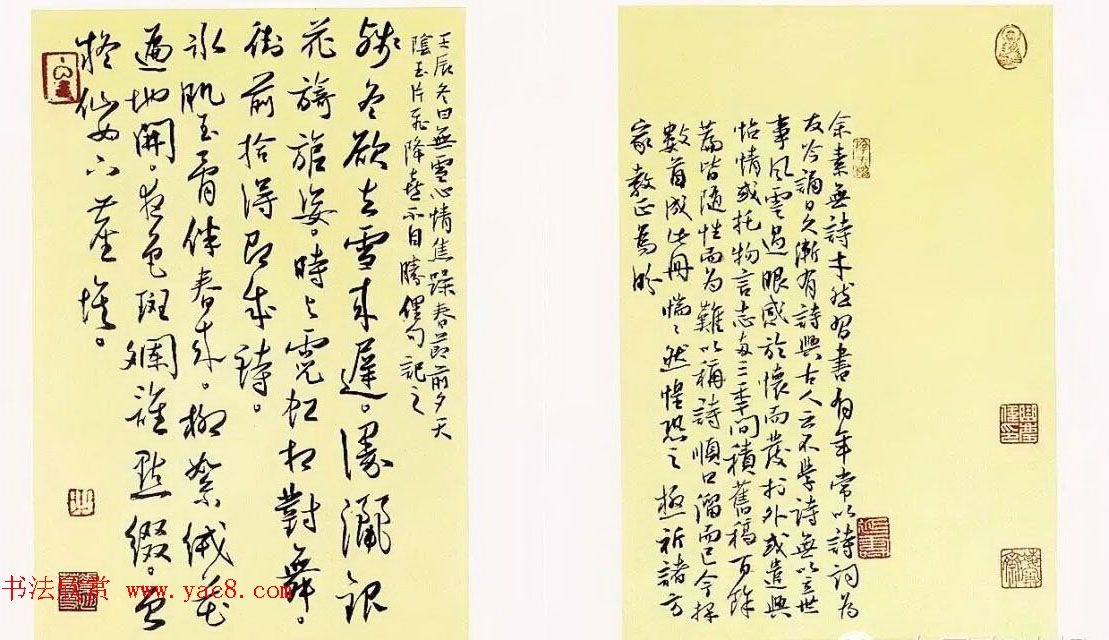 余素無詩才然習書有年常以詩詞為
友吟誦日久漸有詩興古人云不學詩無以立世
事風雲過眼感於懷而發於外或遣興
怡情或托物言志三年間積舊稿百餘
篇皆隨性而為難以稱詩順口溜而已今擇
數首成此冊惴惴然惶恐之極祈諸方
家教正焉
壬辰冬日無雪心情焦躁春節前夕天
陰玉片飛降喜不自勝俚句記之
殘冬欲去雪來遲。漫灑銀
花旖旎姿。時與霓虹相對舞。
街前拾得即成詩。
冰肌玉骨伴春來。柳絮絨花
遍地開。夜色斑斕誰點綴。
疑仙女下塵埃。
书法欣赏 www.yac8.com